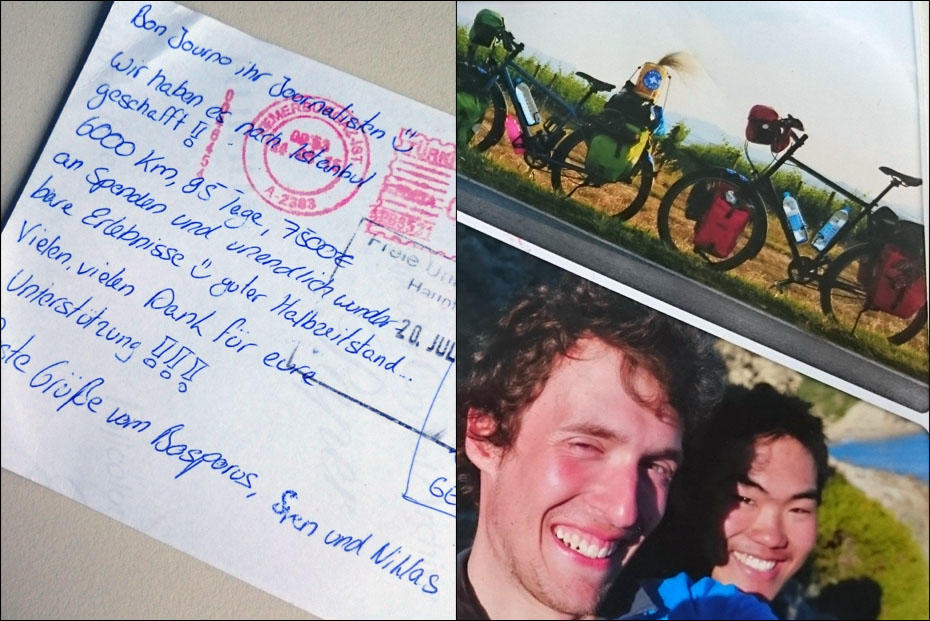 Bon Journo ihr Journalisten
Wir haben es nach Istanbul
geschafft!!
6000 Km, 95 Tage, 7500€
an Spenden und unendlich wunder-
bare Erlebnisse guter Halbzeitstand...
Vielen, vielen Dank für eure
Unterstützung !!!!
Grüße vom Bosporus, Sven und Niklas
A-2383
Freie
20. JUL
GE